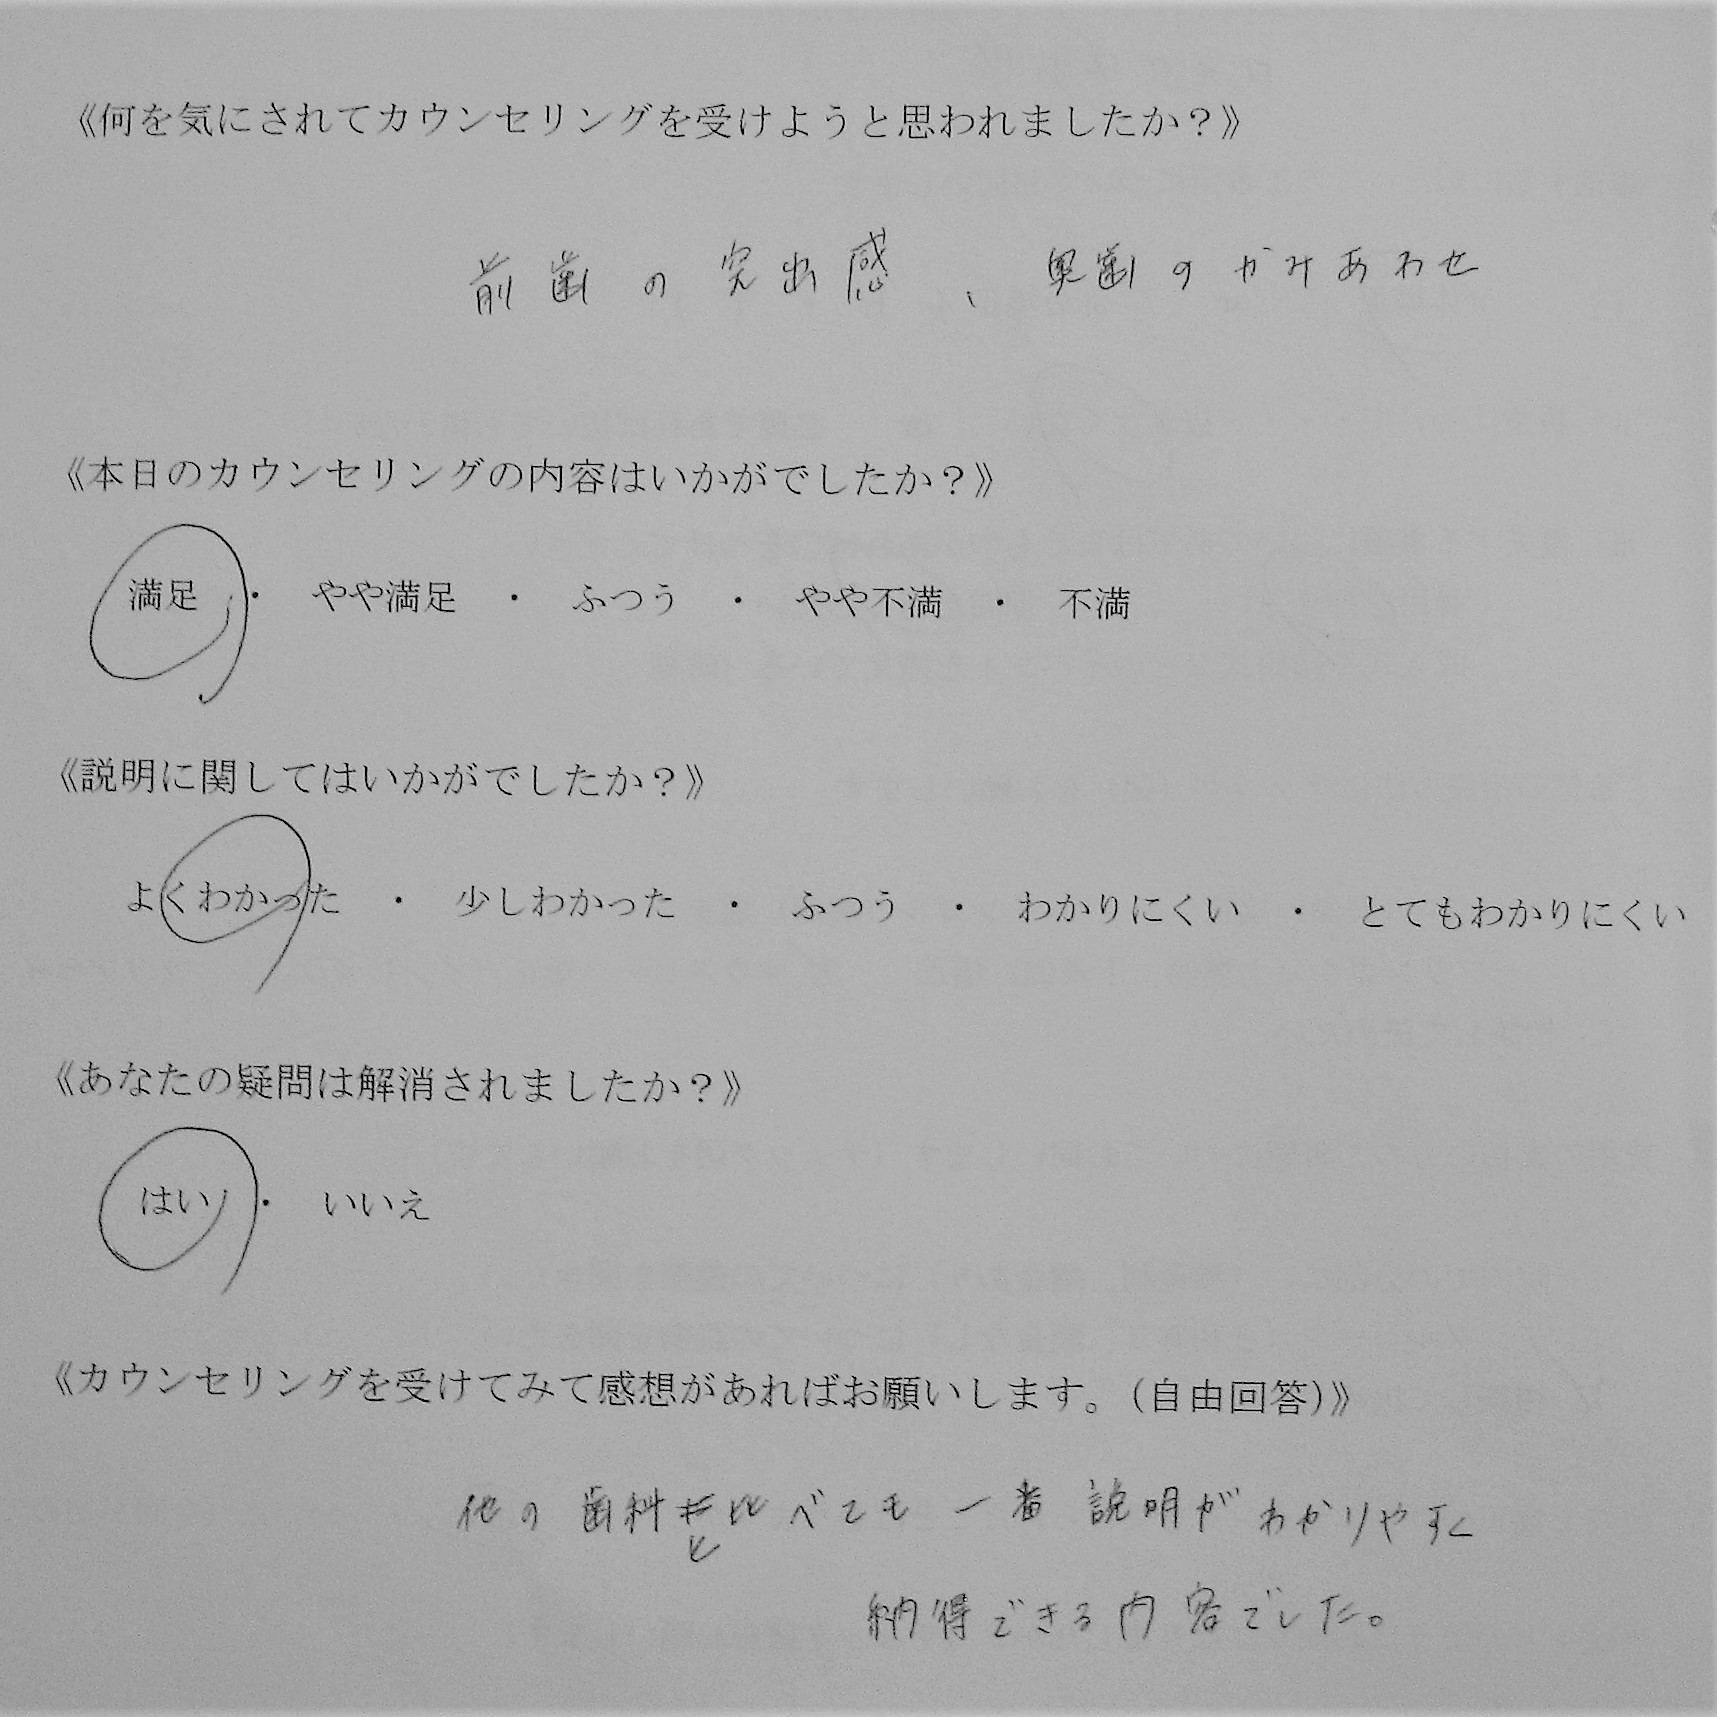 《何を気にされてカウンセリングを受けようと思われましたか？》
前歯の突出感、奥歯のかみあわせ
《本日のカウンセリングの内容はいかがでしたか？》
満足 ・ やや満足 ・ ふつう ・ やや不満 ・ 不満
《説明に関してはいかがでしたか？》
よくわかった ・ 少しわかった ・ ふつう ・ わかりにくい ・ とてもわかりにくい
《あなたの疑問は解消されましたか？》
はい ・ いいえ
《カウンセリングを受けてみて感想があればお願いします。（自由回答）》
他の歯科と比べても一番説明がわかりやすく
納得できる内容でした。